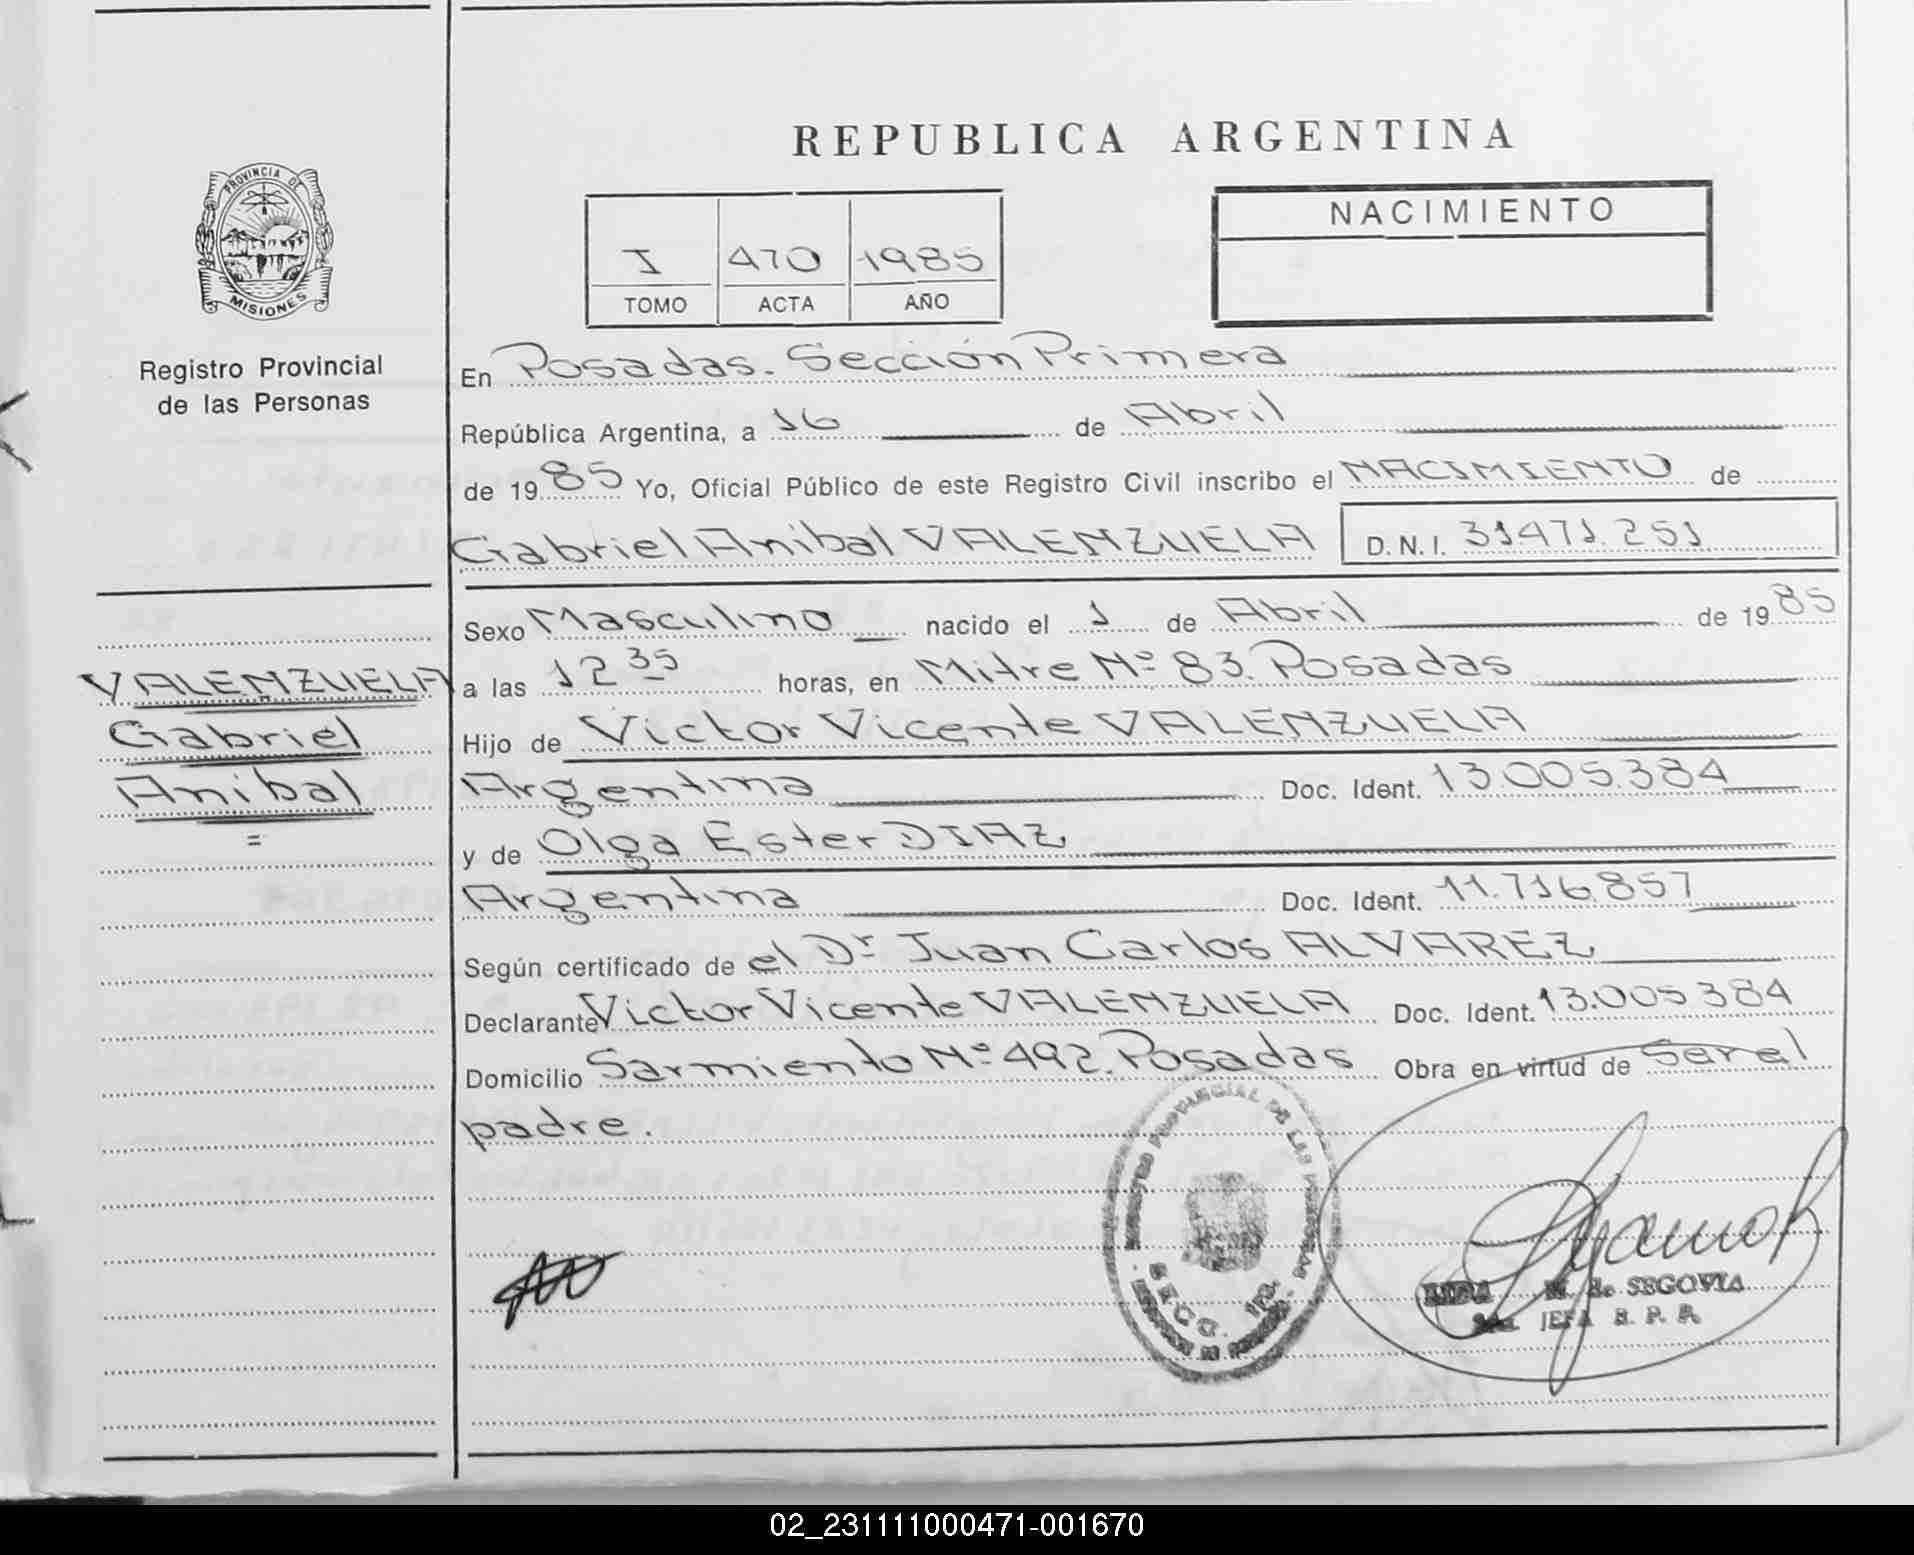 REPUBLICA ARGENTINA
PROVINCIA DE
MISIONES
Registro Provincial
de las Personas
I 470 1985
TOMO ACTA AÑO
NACIMIENTO
En Posadas. Sección Primera
República Argentina, a 16 de Abril
de 1985 Yo, Oficial Público de este Registro Civil inscribo el NACIMIENTO de
Gabriel Anibal VALENZUELA D.N.I. 31.471.251
Sexo Masculino nacido el 1 de Abril de 1985
VALENZUELA
Gabriel
Anibal
=
a las 12 35 horas, en Mitre Nº 83. Posadas
Hijo de Victor Vicente VALENZUELA
Argentina Doc. Ident. 13.005.384
y de Olga Ester DIAZ
Argentina Doc. Ident. 11.716.857
Según certificado de el Dr Juan Carlos ALVAREZ
Declarante Victor Vicente VALENZUELA Doc. Ident. 13.005.384
Domicilio Sarmiento Nº 492. Posadas Obra en virtud de Ser el
padre.
PROVINCIAL DE LAS
SECC. 1ra.
M. de SEGOVIA
JEFA R. P. P.
02_231111000471-001670